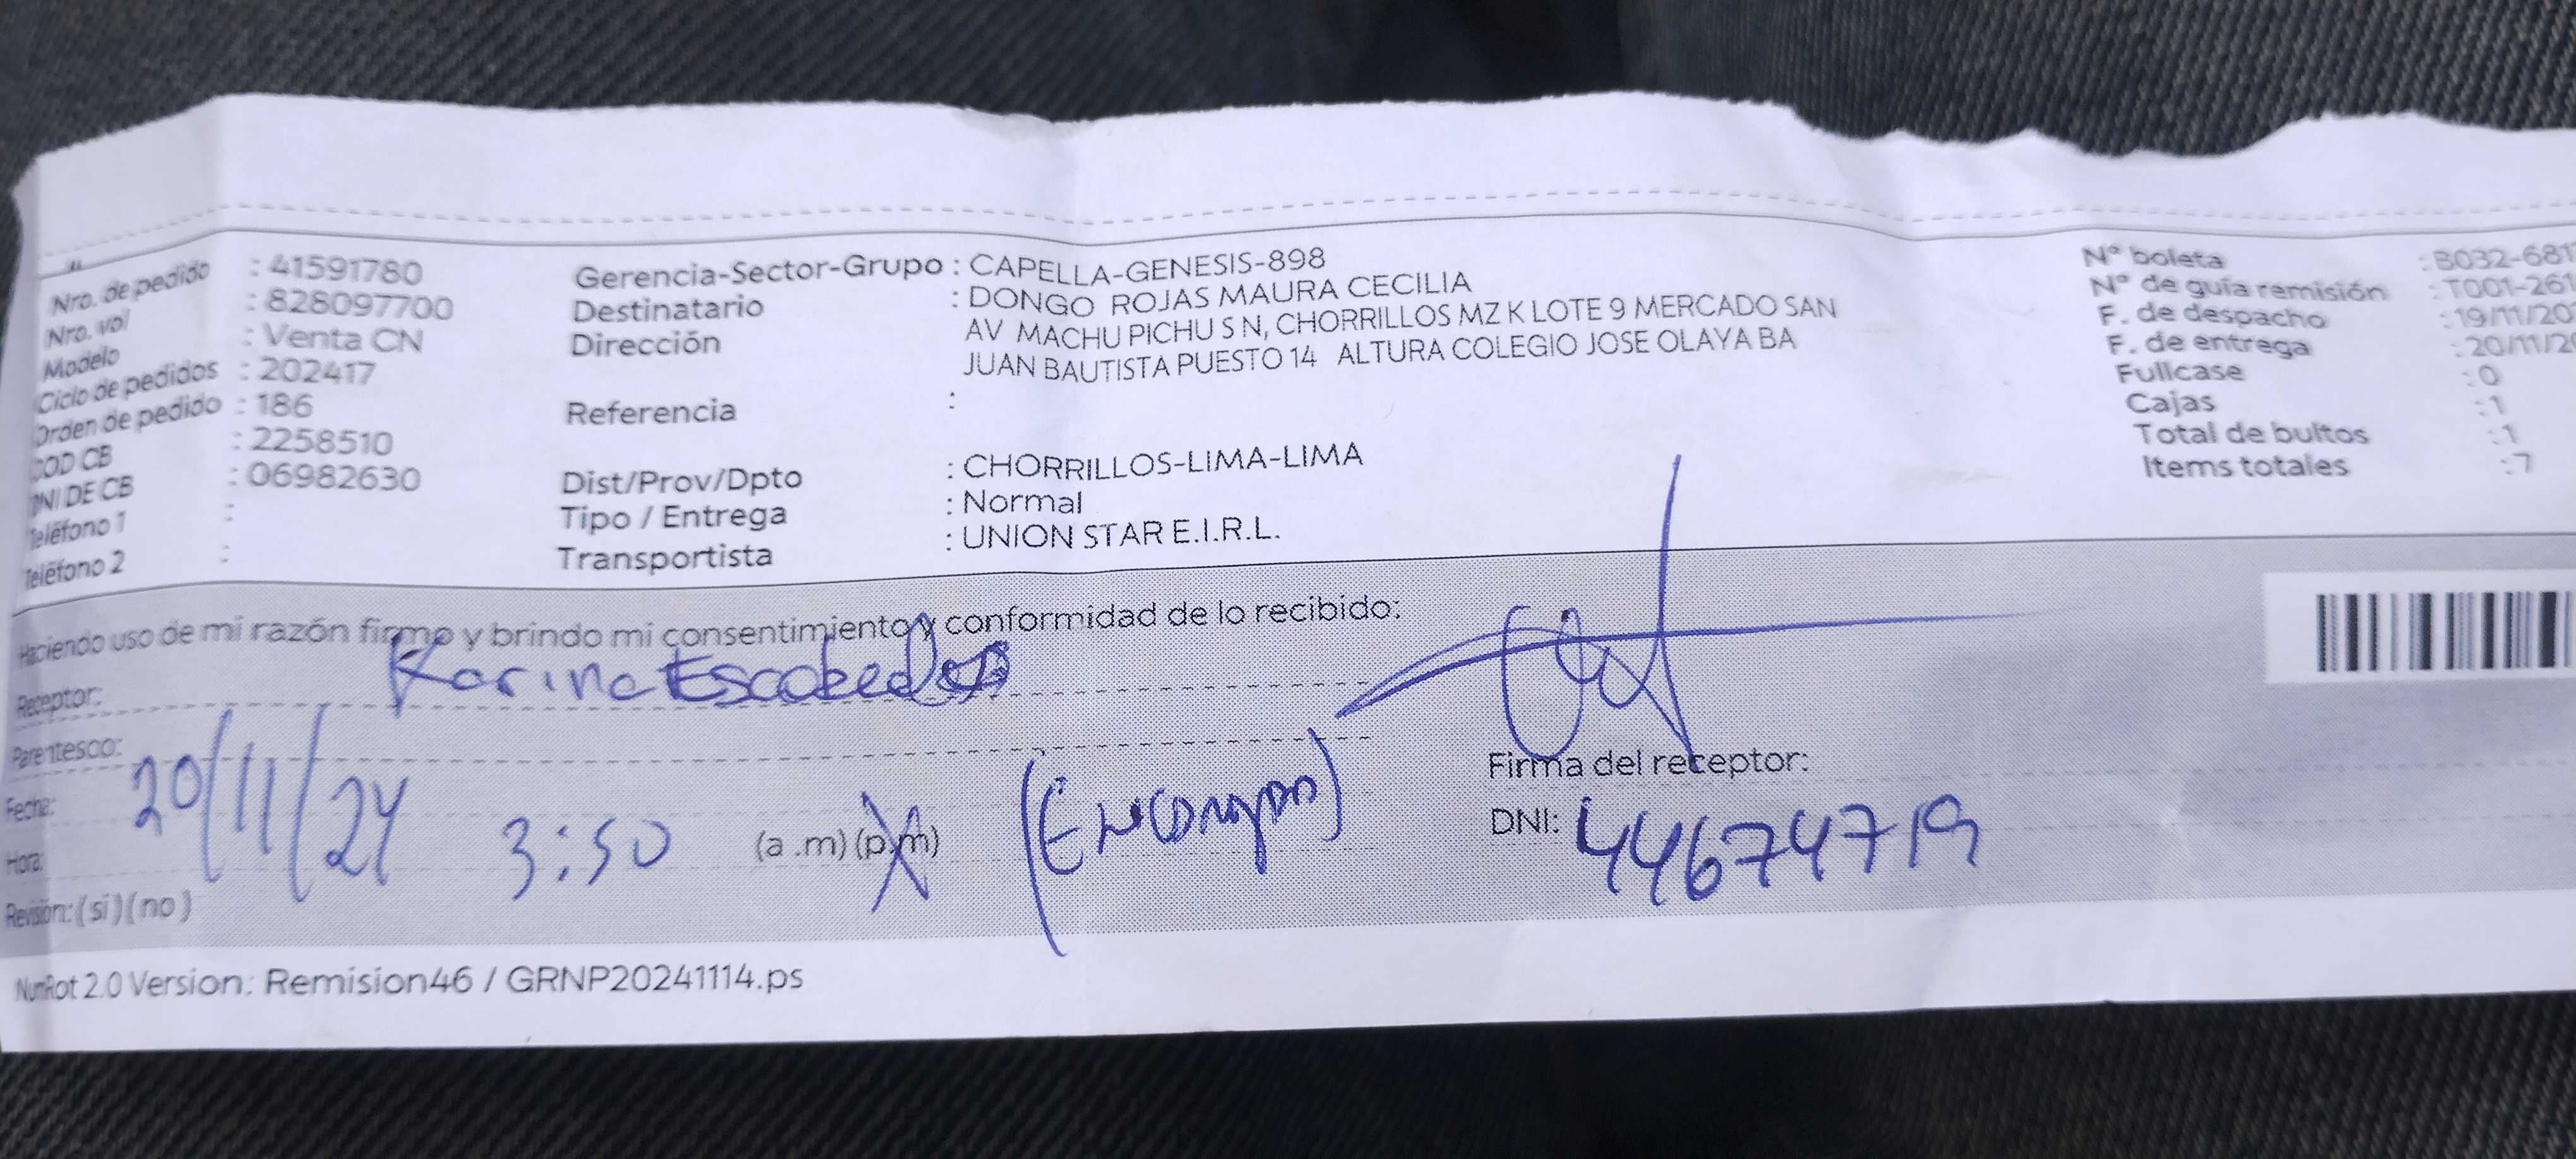 Nro. de pedido : 41591780
Nro. vol : 828097700
Modelo : Venta CN
Ciclo de pedidos : 202417
Orden de pedido : 186
COD CB : 2258510
DNI DE CB : 06982630
Teléfono 1 :
Teléfono 2 :
Gerencia-Sector-Grupo : CAPELLA-GENESIS-898
Destinatario : DONGO ROJAS MAURA CECILIA
Dirección AV MACHU PICHU S N, CHORRILLOS MZ K LOTE 9 MERCADO SAN
JUAN BAUTISTA PUESTO 14 ALTURA COLEGIO JOSE OLAYA BA
Referencia :
Dist/Prov/Dpto : CHORRILLOS-LIMA-LIMA
Tipo / Entrega : Normal
Transportista : UNION STAR E.I.R.L.
Nº boleta : B032-681
Nº de guía remisión : T001-261
F. de despacho : 19/11/20
F. de entrega : 20/11/20
Fullcase : 0
Cajas : 1
Total de bultos : 1
Items totales : 7
Haciendo uso de mi razón firmo y brindo mi consentimiento y conformidad de lo recibido:
Receptor: Karina Escobedo
Parentesco:
Fecha: 20/11/24
Hora: 3:50 (a .m) (p.m) (Encargada)
Revisión: (si) (no)
Firma del receptor:
DNI: 44674719
NumRot 2.0 Version: Remision46 / GRNP20241114.ps